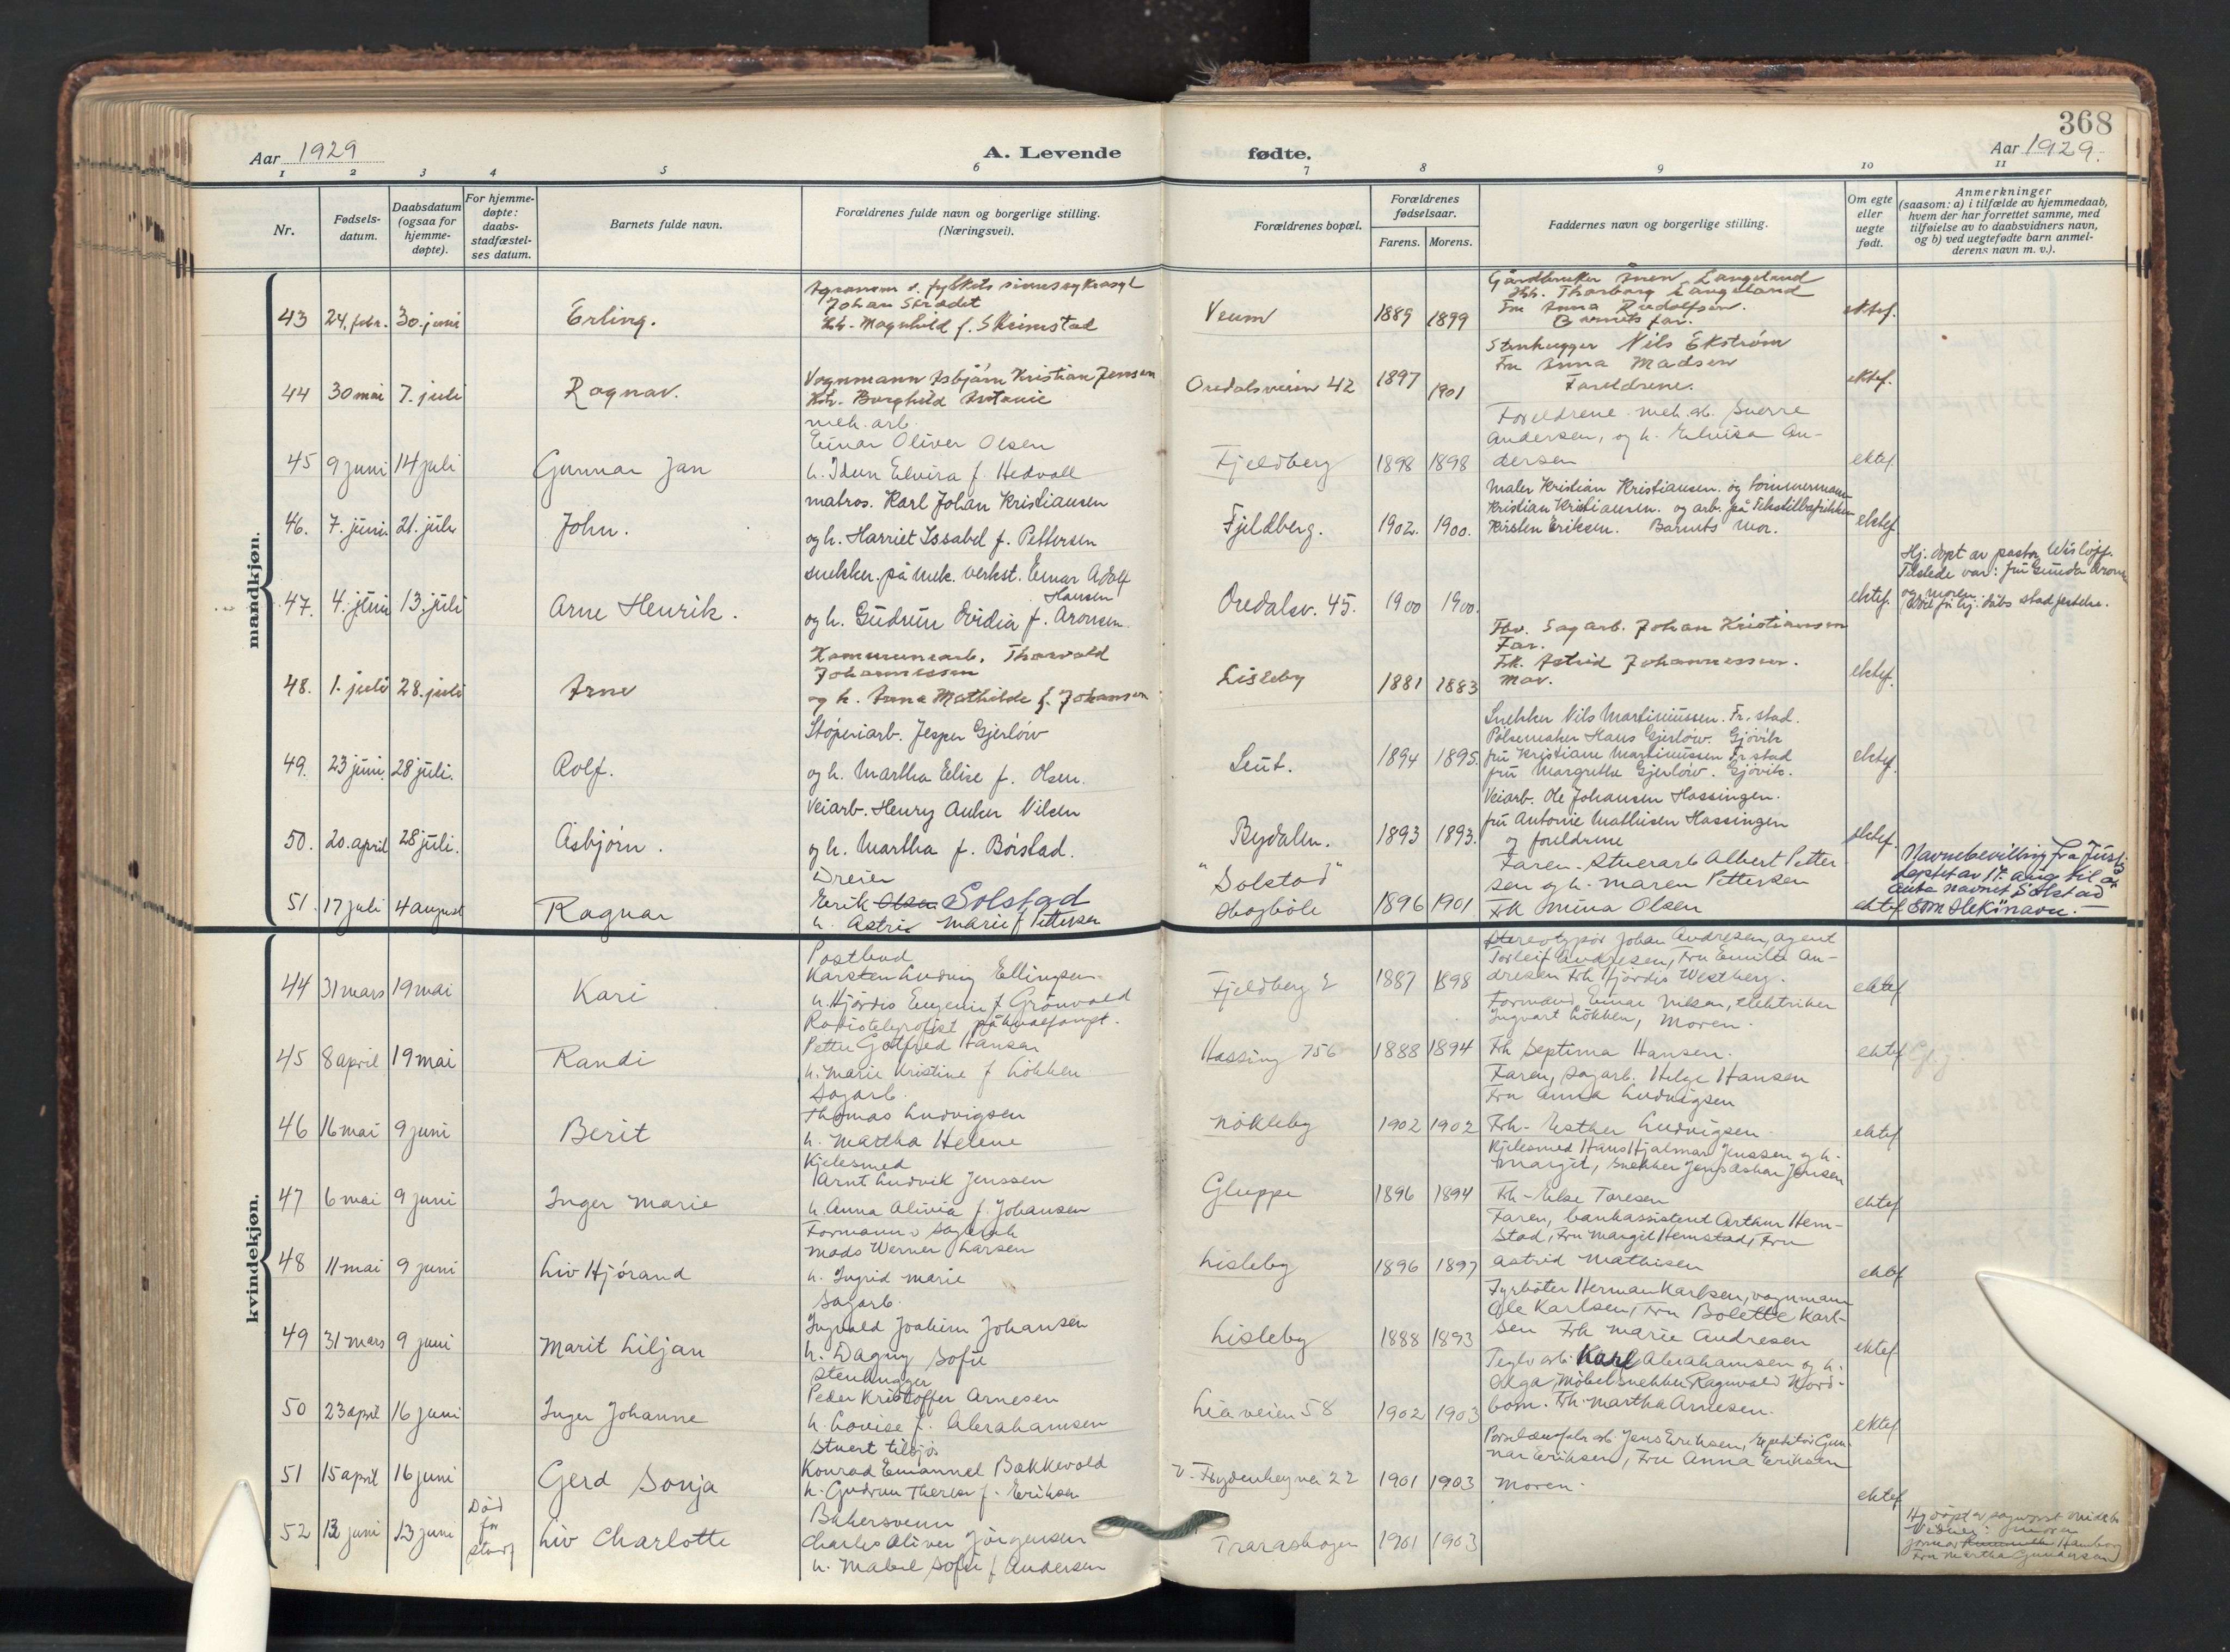 368
Aar 1929
A. Levende
fødte.
Aar 1929.
1 2 3 4 5 6 7 8 9 10 11
Nr.
Fødsels-
datum.
Daabsdatum
(ogsaa for
hjemme-
døpte).
For hjemme-
døpte:
daabs-
stadfæstel-
ses datum.
Barnets fulde navn.
Forældrenes fulde navn og borgerlige stilling.
(Næringsvei).
Forældrenes bopæl.
Forældrenes
fødselsaar.
Farens. Morens.
Faddernes navn og borgerlige stilling.
Om egte
eller
uegte
født.
Anmerkninger
(saasom: a) i tilfælde av hjemmedaab,
hvem der har forrettet samme, med
tilføielse av to daabsvidners navn,
og b) ved uegtefødte barn anmel-
derens navn m. v.).
mandkjøn.
43 24. febr. 30. juni Erling.
Agronom v. fylkets sinnssykeasyl
Johan Strødet
h. Magnhild f. Skimstad
Veum 1889 1899
Gårdbruker Langeland
Thorborg Langeland
Fru Anna Rudolfsen.
Barnets far.
ektef.
44 30 mai 7. juli Ragnar.
Vognmann Asbjørn Kristian Jensen
Borghild Antonie
Oredalsveien 42 1897 1901
Stenhugger Nils Ekstrøm
Fru Anna Madsen
Foreldrene.
ektef.
45 9 juni 14 juli Gunnar Jan
mek. arb.
Einar Oliver Olsen
h. Idun Elvira f. Hedvall
Fjeldberg 1898 1898
Foreldrene mek. arb. Sverre
Andersen, og h. Elvira An-
dersen
ektef.
46. 7. juni 21. juli John.
matros. Karl Johan Kristiansen
og h. Harriet Issabel f. Pettersen
Fjeldberg. 1902. 1900.
Maler Kristian Kristiansen. og tømmermann
Kristian Kristiansen. og arb. på Tekstilfabrikken
Kirsten Eriksen. Barnets mor.
ektef.
47. 4. juni 13. juli Arne Henrik.
snekker. på mek. verkst. Einar Adolf
Hansen
og h. Gudrun Ovidia f. Aronsen.
Oredalsv. 45. 1900 1900.
ektef.
Hj. døpt av pastor Wisløff.
Tilstede var: fru Gunda
og moren.
48. 1. juli 28. juli Arne
Kommunearb. Thorvald
Johannessen
og h. Anna Mathilde f. Johansen
Lisleby 1881 1883
Fbv. Sagarb. Johan Kristiansen
Far.
Frk. Astrid Johannessen.
Mor.
ektef.
49. 23 juni. 28 juli. Rolf.
Støperiarb. Jesper Gjerløw
og h. Martha Elise f. Olsen.
Leut. 1894 1895.
Snekker Nils Martiniussen. Fr. stad.
Pølsemaker Hans Gjerløw. Gjøvik
fru Kristiane Martiniussen Fr. stad
fru Margrethe Gjerløw. Gjøvik.
ektef.
50. 20. april 28 juli. Asbjørn.
Veiarb. Henry Anker Nilsen
og h. Martha f. Børstad.
Bydalen. 1893 1893.
Veiarb. Ole Johansen Hassingen.
fru Antonie Mathisen Hassingen
og foreldrene
ektef.
51. 17 juli 4 august Ragnar
Dreier
Erik Olsen Solstad
h. Astrid Marie f Pettersen
"Solstad"
1896 1901
Faren. Stuerarb Albert Petter-
sen og h. Maren Pettersen
Frk Mina Olsen
ektef
Navnebevilling fra Just.
deptet av 17. aug til å
anta navnet Solstad
som slektsnavn.
kvindekjøn.
44 31 mars 19 mai Kari
Postbud
Karsten Ludvig Ellingsen
h. Hjørdis Eugenie f Grönvold
Fjeldberg 2 1887 1898
Stereotypör Johan Andresen, agent
Torleif Andresen, Fru Emilie An-
dresen Frk Hjördis Westberg.
ektef
45 8 april 19 mai Randi
Radiotelegrafist på hvalfangst.
Petter Gotfred Hansen
h. Marie Kristine f Lökken
Hassing 756 1888 1894
Formand Einar Nilsen, elektriker
Ingvart Lökken, Moren.
Frk Septima Hansen.
ektef
46 16 mai 9 juni Berit
Sagarb.
Thomas Ludvigsen
h. Martha Helene
Nökleby 1902 1902
Faren, Sagarb. Helge Hansen
Fru Anna Ludvigsen
Frk. Esther Ludvigsen
ektef
47 6 mai 9 juni Inger Marie
Kjelesmed
Arnt Ludvik Jenssen
h. Anna Alivia f. Johansen
Gluppe 1896 1894
Kjelesmed Hans Hjalmar Jenssen og h.
Margit, Snekker Jens Oskar Jensen
Frk. Else Toresen
ektef
48 11 mai 9 juni Liv Hjörand
Formann v sagbruk
Mads Werner Larsen
h. Ingrid Marie
Lisleby 1896 1897
Faren, bankassistent Arthur Hem-
stad, Fru Margit Hemstad, Fru
Astrid Mathisen
ektef
49 31 mars 9 juni Marit Liljan
Sagarb.
Ingvald Joakim Johansen
h. Dagny Sofie
Lisleby 1888 1893
Fyrböter Herman Karlsen, vognmann
Ole Karlsen, Fru Bolette Karl-
sen Frk Marie Andresen
ektef
50 23 april 16 juni Inger Johanne
Stenhugger
Peder Kristoffer Arnesen
h. Lovise f. Abrahamsen
Liaveien 58 1902 1903
Teglv arb. Karl Abrahamsen og h.
Olga, Möbelsnekker Ragnvald Nord-
bom. Frk. Martha Arnesen.
ektef
51 15 april 16 juni Gerd Sonja
Stuert tilsjøs
Konrad Emanuel Bakkevold
h. Gudrun Therese f. Eriksen
V. Frydenbergvei 22 1901 1903
Porselensfabr arb Jens Eriksen, Repetitör Gun-
nar Eriksen, Fru Anna Eriksen
Moren.
ektef
52 12 juni 13 juni
Död
för
stadf
Liv Charlotte
Bakersvenn
Charles Oliver Jörgensen
h. Mabel Sofie f Andersen
Traraskogen 1901 1903
Hj döpt av
Vidner: jordmor
Fru Martha Gundersen